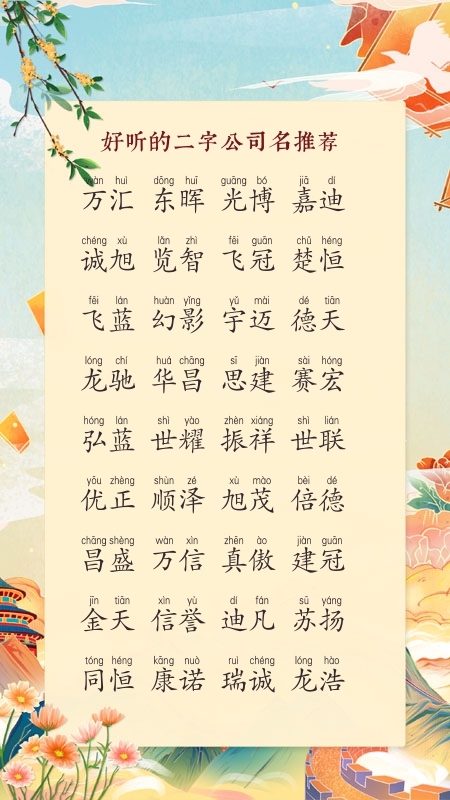 好听的二字公司名推荐
wàn huì dōng huī guāng bó jiā dí
万汇 东晖 光博 嘉迪
chéng xù lǎn zhì fēi guān chǔ héng
诚旭 览智 飞冠 楚恒
fēi lán huàn yǐng yǔ mài dé tiān
飞蓝 幻影 宇迈 德天
lóng chí huá chāng sī jiàn sài hóng
龙驰 华昌 思建 赛宏
hóng lán shì yào zhèn xiáng shì lián
弘蓝 世耀 振祥 世联
yōu zhèng shùn zé xù mào bèi dé
优正 顺泽 旭茂 倍德
chāng shèng wàn xìn zhēn ào jiàn guān
昌盛 万信 真傲 建冠
jīn tiān xìn yù dí fán sū yáng
金天 信誉 迪凡 苏扬
tóng héng kāng nuò ruì chéng lóng hào
同恒 康诺 瑞诚 龙浩